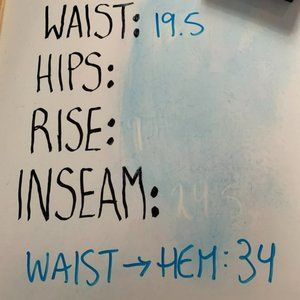 WAIST: 19.5
HIPS:
RISE:
INSEAM:
WAIST → HEM: 34